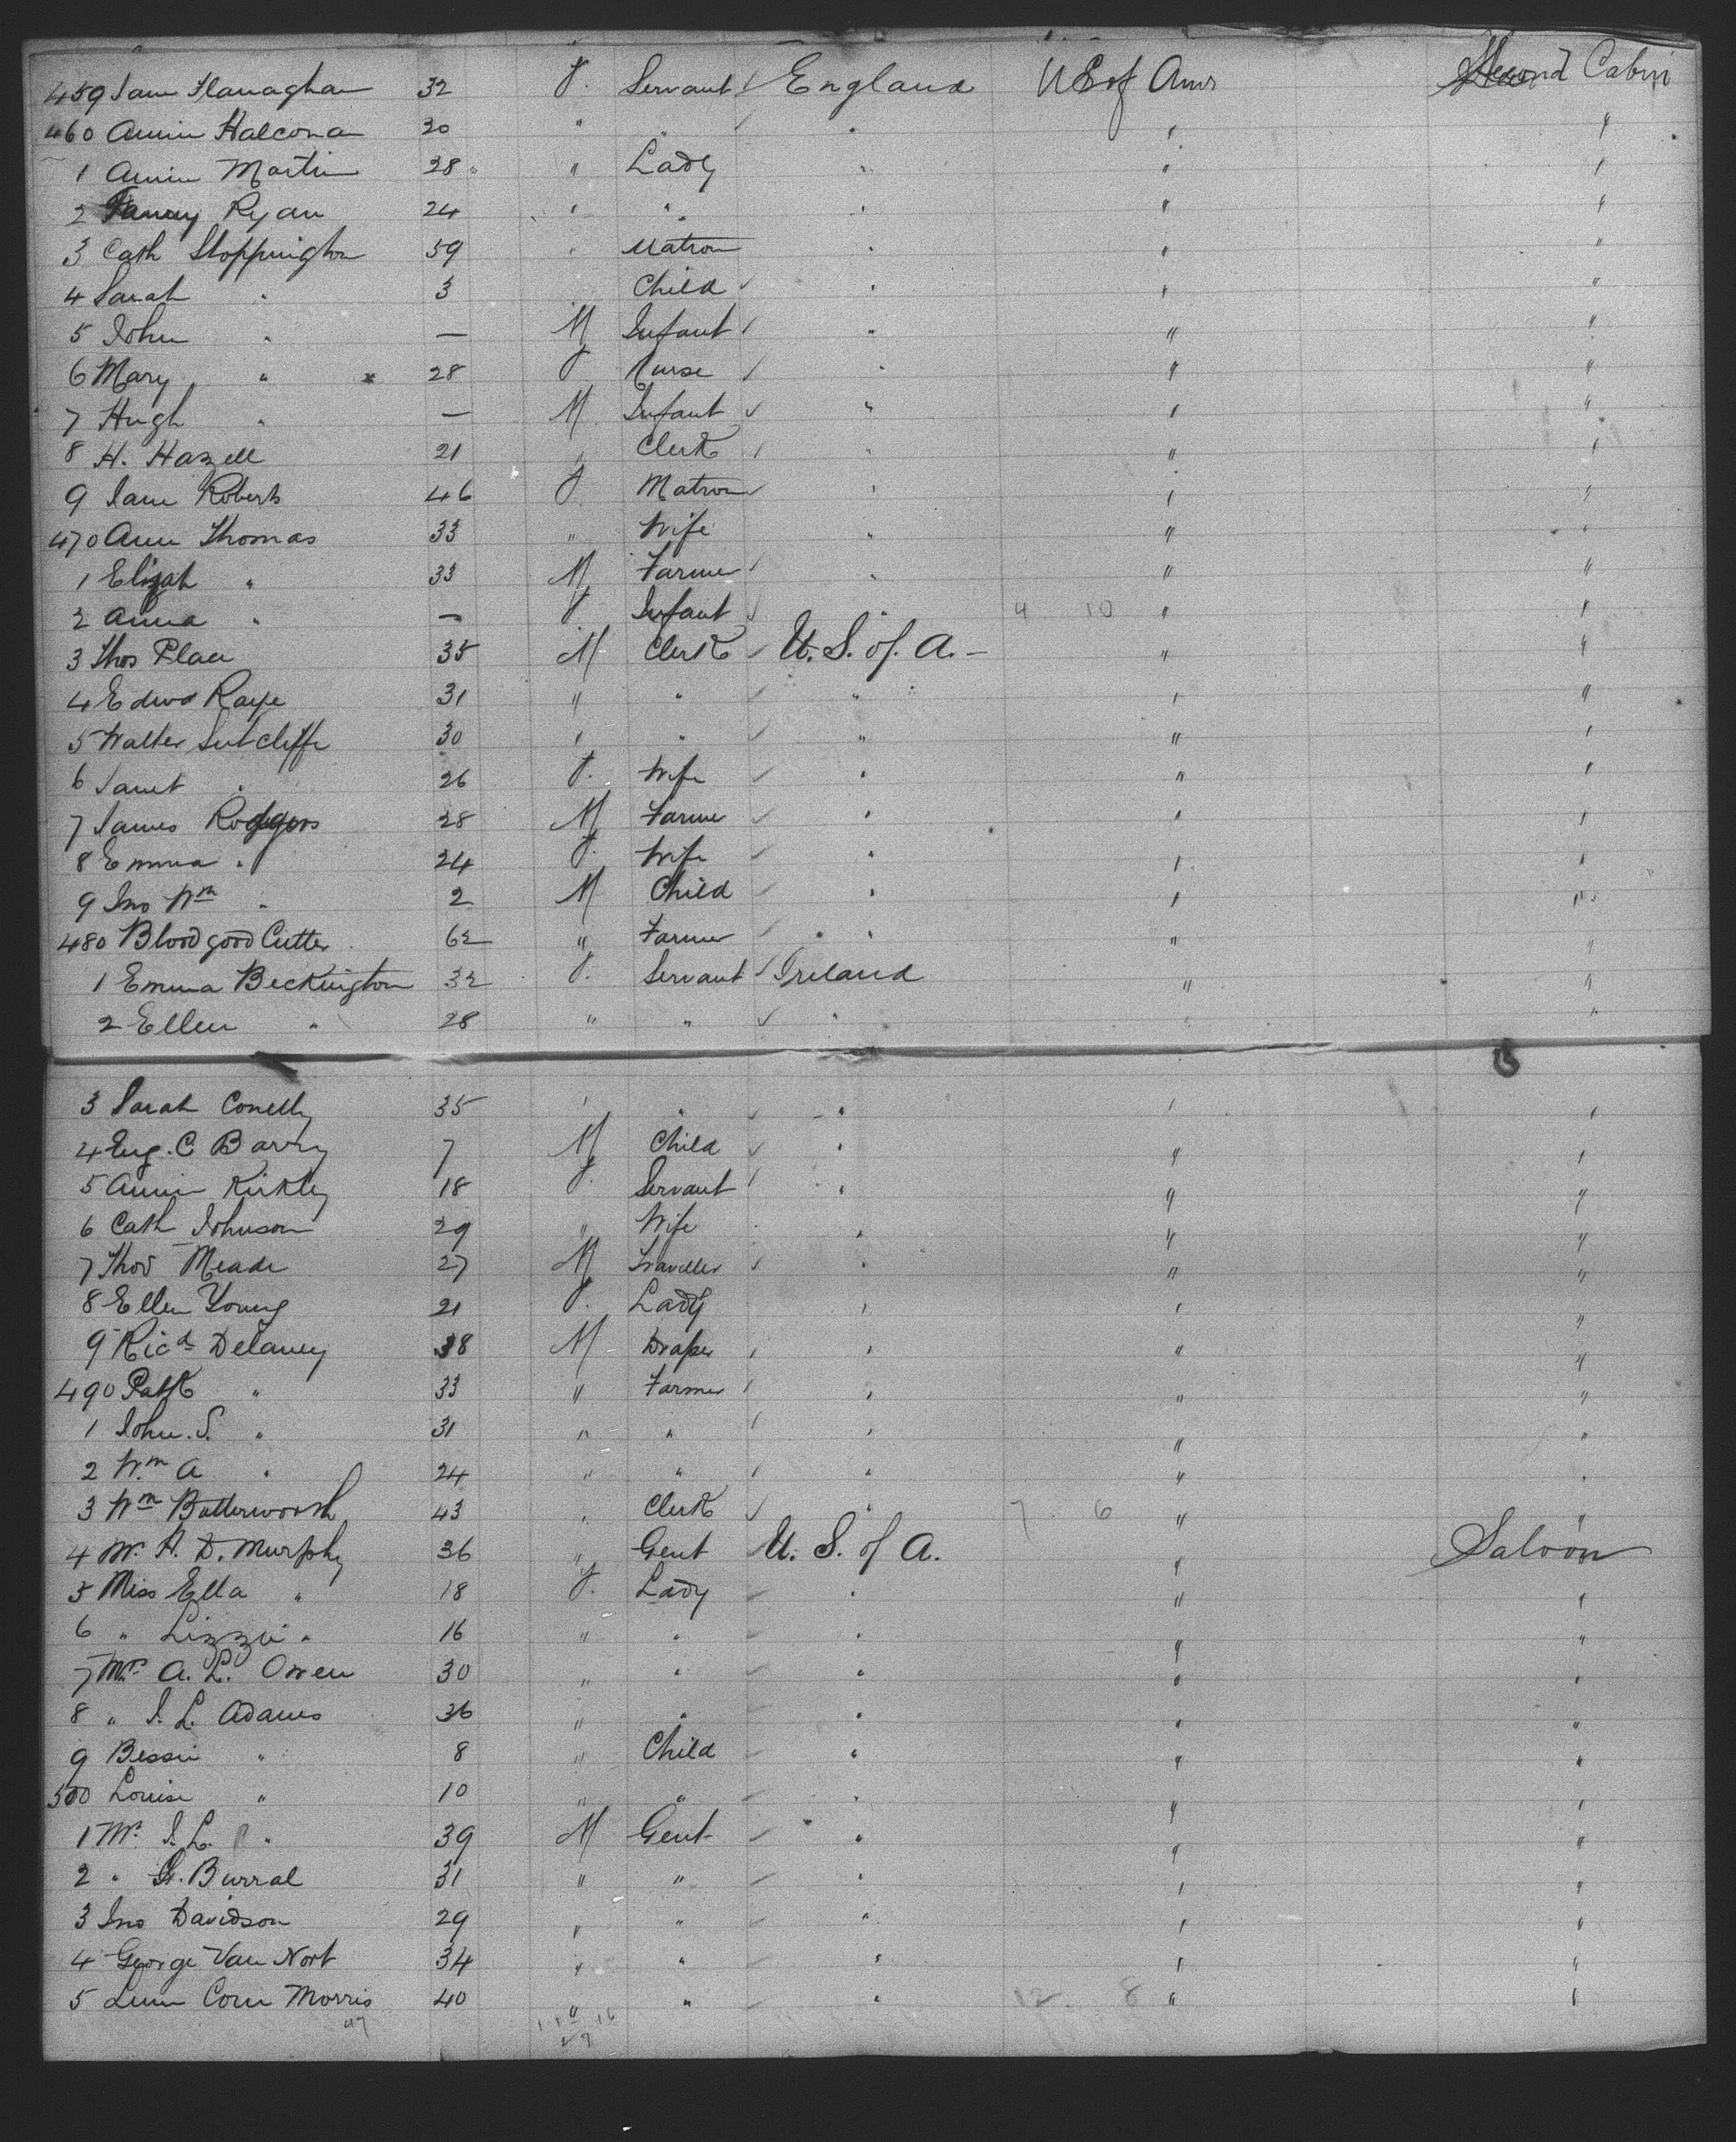 459 Jane Flanaghan 32 F. Servant ✓ England US of Amr Second Cabin
460 Annie Halcona 30 " " ✓ " " "
1 Annie Martin 28 " Lady " " "
2 Fanny Ryan 24 " " " " "
3 Cath Stoppington 59 " Matron " " "
4 Sarah " 3 Child ✓ " " "
5 John " — M Infant ✓ " " "
6 Mary " 28 F Nurse ✓ " " "
7 Hugh " — M Infant ✓ " " "
8 H. Hazell 21 " Clerk ✓ " " "
9 Jane Roberts 46 F. Matron ✓ " " "
470 Ann Thomas 33 " Wife " " "
1 Elijah " 33 M Farmer ✓ " " "
2 Anna " — F Infant ✓ " 4 10 " "
3 Thos Place 35 M Clerk ✓ U. S. of. A. — " "
4 Edwd Raye 31 " " ✓ " " "
5 Walter Sutcliffe 30 " " ✓ " " "
6 Janet " 26 F. Wife ✓ " " "
7 James Rodgers 28 M Farmer ✓ " " "
8 Emma " 24 F. Wife ✓ " " "
9 Jno Wm " 2 M Child ✓ " " "
480 Bloodgood Cutter 62 " Farmer ✓ " " "
1 Emma Beckington 32 F. Servant ✓ Ireland " "
2 Ellen " 28 " " ✓ " " "
3 Sarah Conelly 35 " " ✓ " " "
4 Eug. C Barry 7 M Child ✓ " " "
5 Annie Kirkley 18 F. Servant ✓ " " "
6 Cath Johnson 29 " Wife " " "
7 Thos Meade 27 M Traveller ✓ " " "
8 Ellen Young 21 F. Lady " " "
9 Ricd Delaney 38 M Draper ✓ " " "
490 Patk " 33 " Farmer ✓ " " "
1 John. S. " 31 " " ✓ " " "
2 Wm A " 24 " " ✓ " " "
3 Wm Butterworth 43 " Clerk ✓ " 7 6 " "
4 Mr. H. D. Murphy 36 " Gent U. S. of A. " Saloon
5 Miss Ella " 18 F. Lady ✓ " " "
6 " Lizzie " 16 " " ✓ " " "
7 Mrs A. L. Owen 30 " " ✓ " " "
8 " J. L. Adams 36 " " ✓ " " "
9 Bessie " 8 " Child ✓ " " "
500 Louise " 10 " " ✓ " " "
1 Mr. J. L. " 39 M Gent ✓ " " "
2 " G. Burral 31 " " ✓ " " "
3 Jno Davidson 29 " " ✓ " " "
4 George Van Nort 34 " " ✓ " " "
5 Corn Morris 40 " " ✓ " 12 8 " "
47